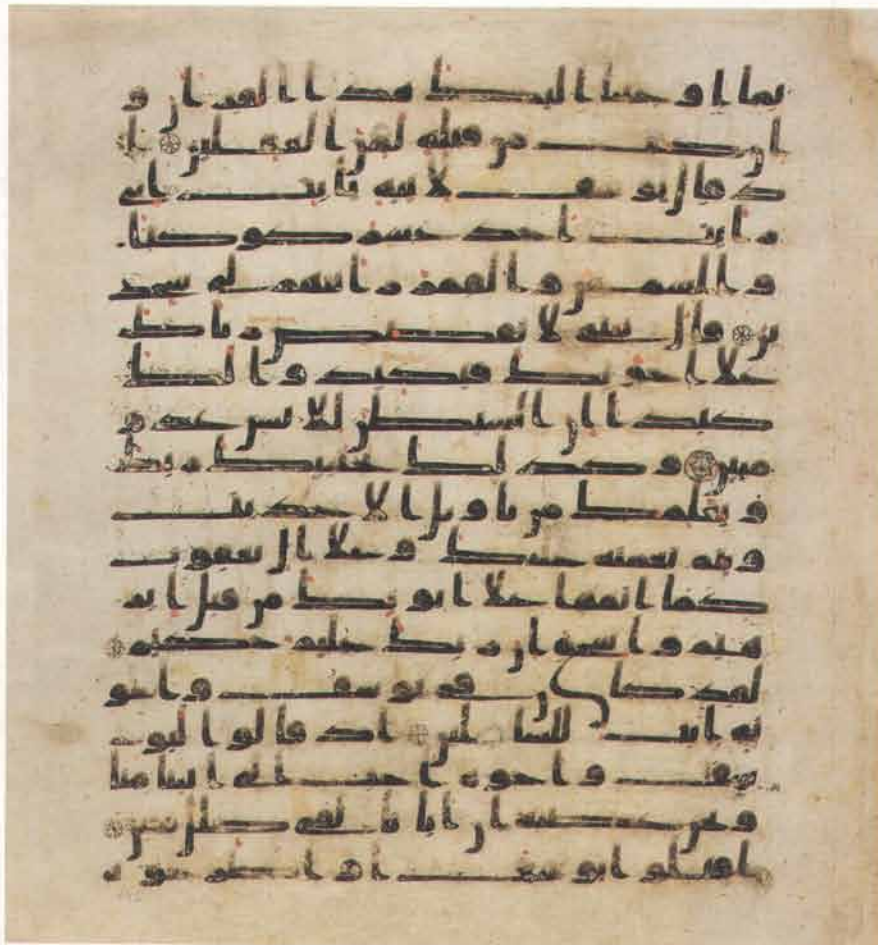 بما اوحينا اليك هذا القران و
ان كنت من قبله لمن الغفلين ا
ذ قال يوسف لابيه يابت اني
رايت احد عشر كوكبا
والشمس والقمر رايتهم لي سجد
ين قال يبني لا تقصص رياك
علا اخوتك فيكيدوا لك
كيدا ان الشيطن للانسن عدو
مبين وكذلك يجتبيك ربك
ويعلمك من تاويل الاحديث
ويتم نعمته عليك وعلا ال يعقوب
كما اتمها علا ابويك من قبل ابر
هيم واسحق ان ربك عليم حكيم
لقد كان في يوسف واخو
ته ايت للسايلين اذ قالوا ليو
سف واخوه احب الى ابينا منا
ونحن عصبه ان ابانا لفي ضلل مبين
اقتلوا يوسف او اطرحوه